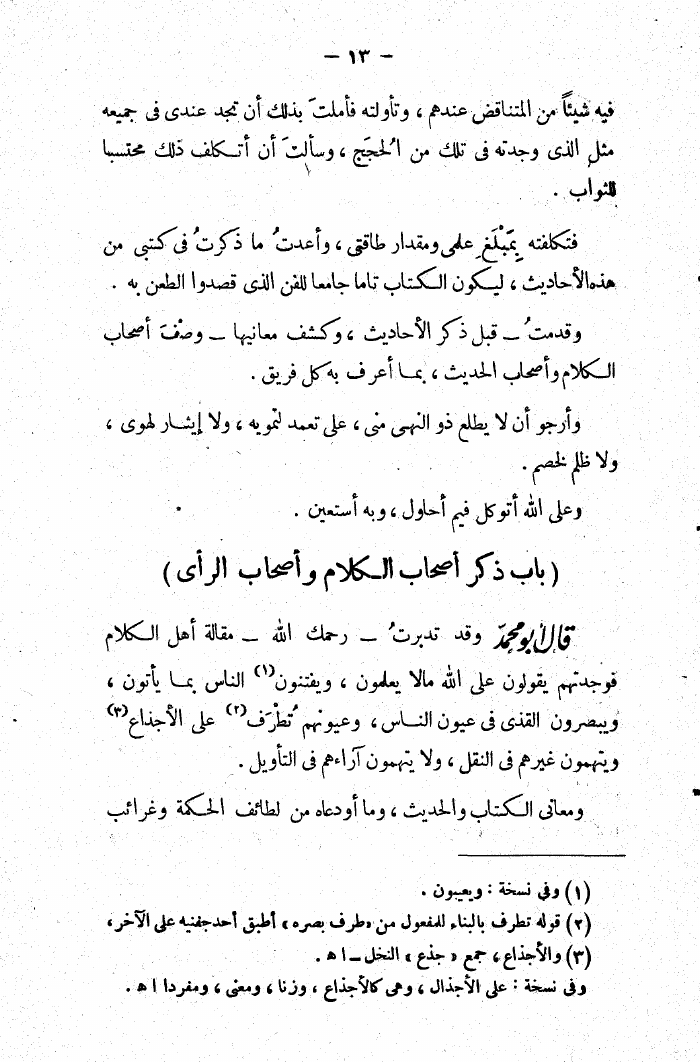 – ١٣ –
فيه شيئاً من المتناقض عندهم ، وتأولته فأملتَ بذلك أن تجد عندى فى جميعه
مثل الذى وجدته فى تلك من الُحجَج ، وسألتَ أن أتكلف ذلك محتسبا
للثواب .
فتكلفته بِمَبْلَغِ علمى ومقدار طاقتى ، وأعدتُ ما ذكرتُ فى كتبى من
هذه الأحاديث ، ليكون الكتاب تاما جامعا للفن الذى قصدوا الطعن به .
وقدمتُ – قبل ذكر الأحاديث ، وكشف معانيها – وصْفَ أصحاب
الكلام وأصحاب الحديث ، بما أعرف به كل فريق .
وأرجو أن لا يطلع ذو النهى منى ، على تعمد لتمويه ، ولا إيثار لهوى ،
ولا ظلم لخصم .
وعلى الله أتوكل فيم أحاول ، وبه أستعين .
( باب ذكر أصحاب الكلام وأصحاب الرأى )
قال أبو محمد وقد تدبرتُ – رحمك الله – مقالة أهل الكلام
فوجدتهم يقولون على الله مالا يعلمون ، ويفتنون(١) الناس بما يأتون ،
ويبصرون القذى فى عيون الناس ، وعيونهم تُطْرَف(٢) على الأجذاع(٣)
ويتهمون غيرهم فى النقل ، ولا يتهمون آراءهم فى التأويل .
ومعانى الكتاب والحديث ، وما أودعاه من لطائف الحكمة وغرائب
(١) وفى نسخة : ويعيبون .
(٢) قوله تطرف بالبناء للمفعول من «طرف بصره» أطبق أحد جفنيه على الآخر ،
(٣) والأجذاع ، جمع « جذع » النخل – ا ه .
وفى نسخة : على الأجذال ، وهى كالأجذاع ، وزنا ، ومعنى ، ومفردا ا ه .